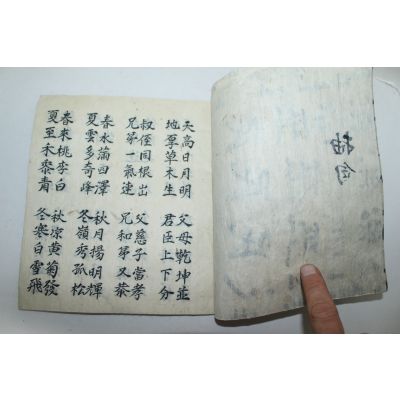 抽句
天高日月明
地厚草木生
父母乾坤並
君臣上下分
叔侄同根出
兄弟一氣連
父慈子當孝
兄和弟又恭
春水滿四澤
夏雲多奇峰
秋月揚明輝
冬嶺秀孤松
春來桃李白
夏至禾黍青
秋凉黃菊發
冬寒白雪飛